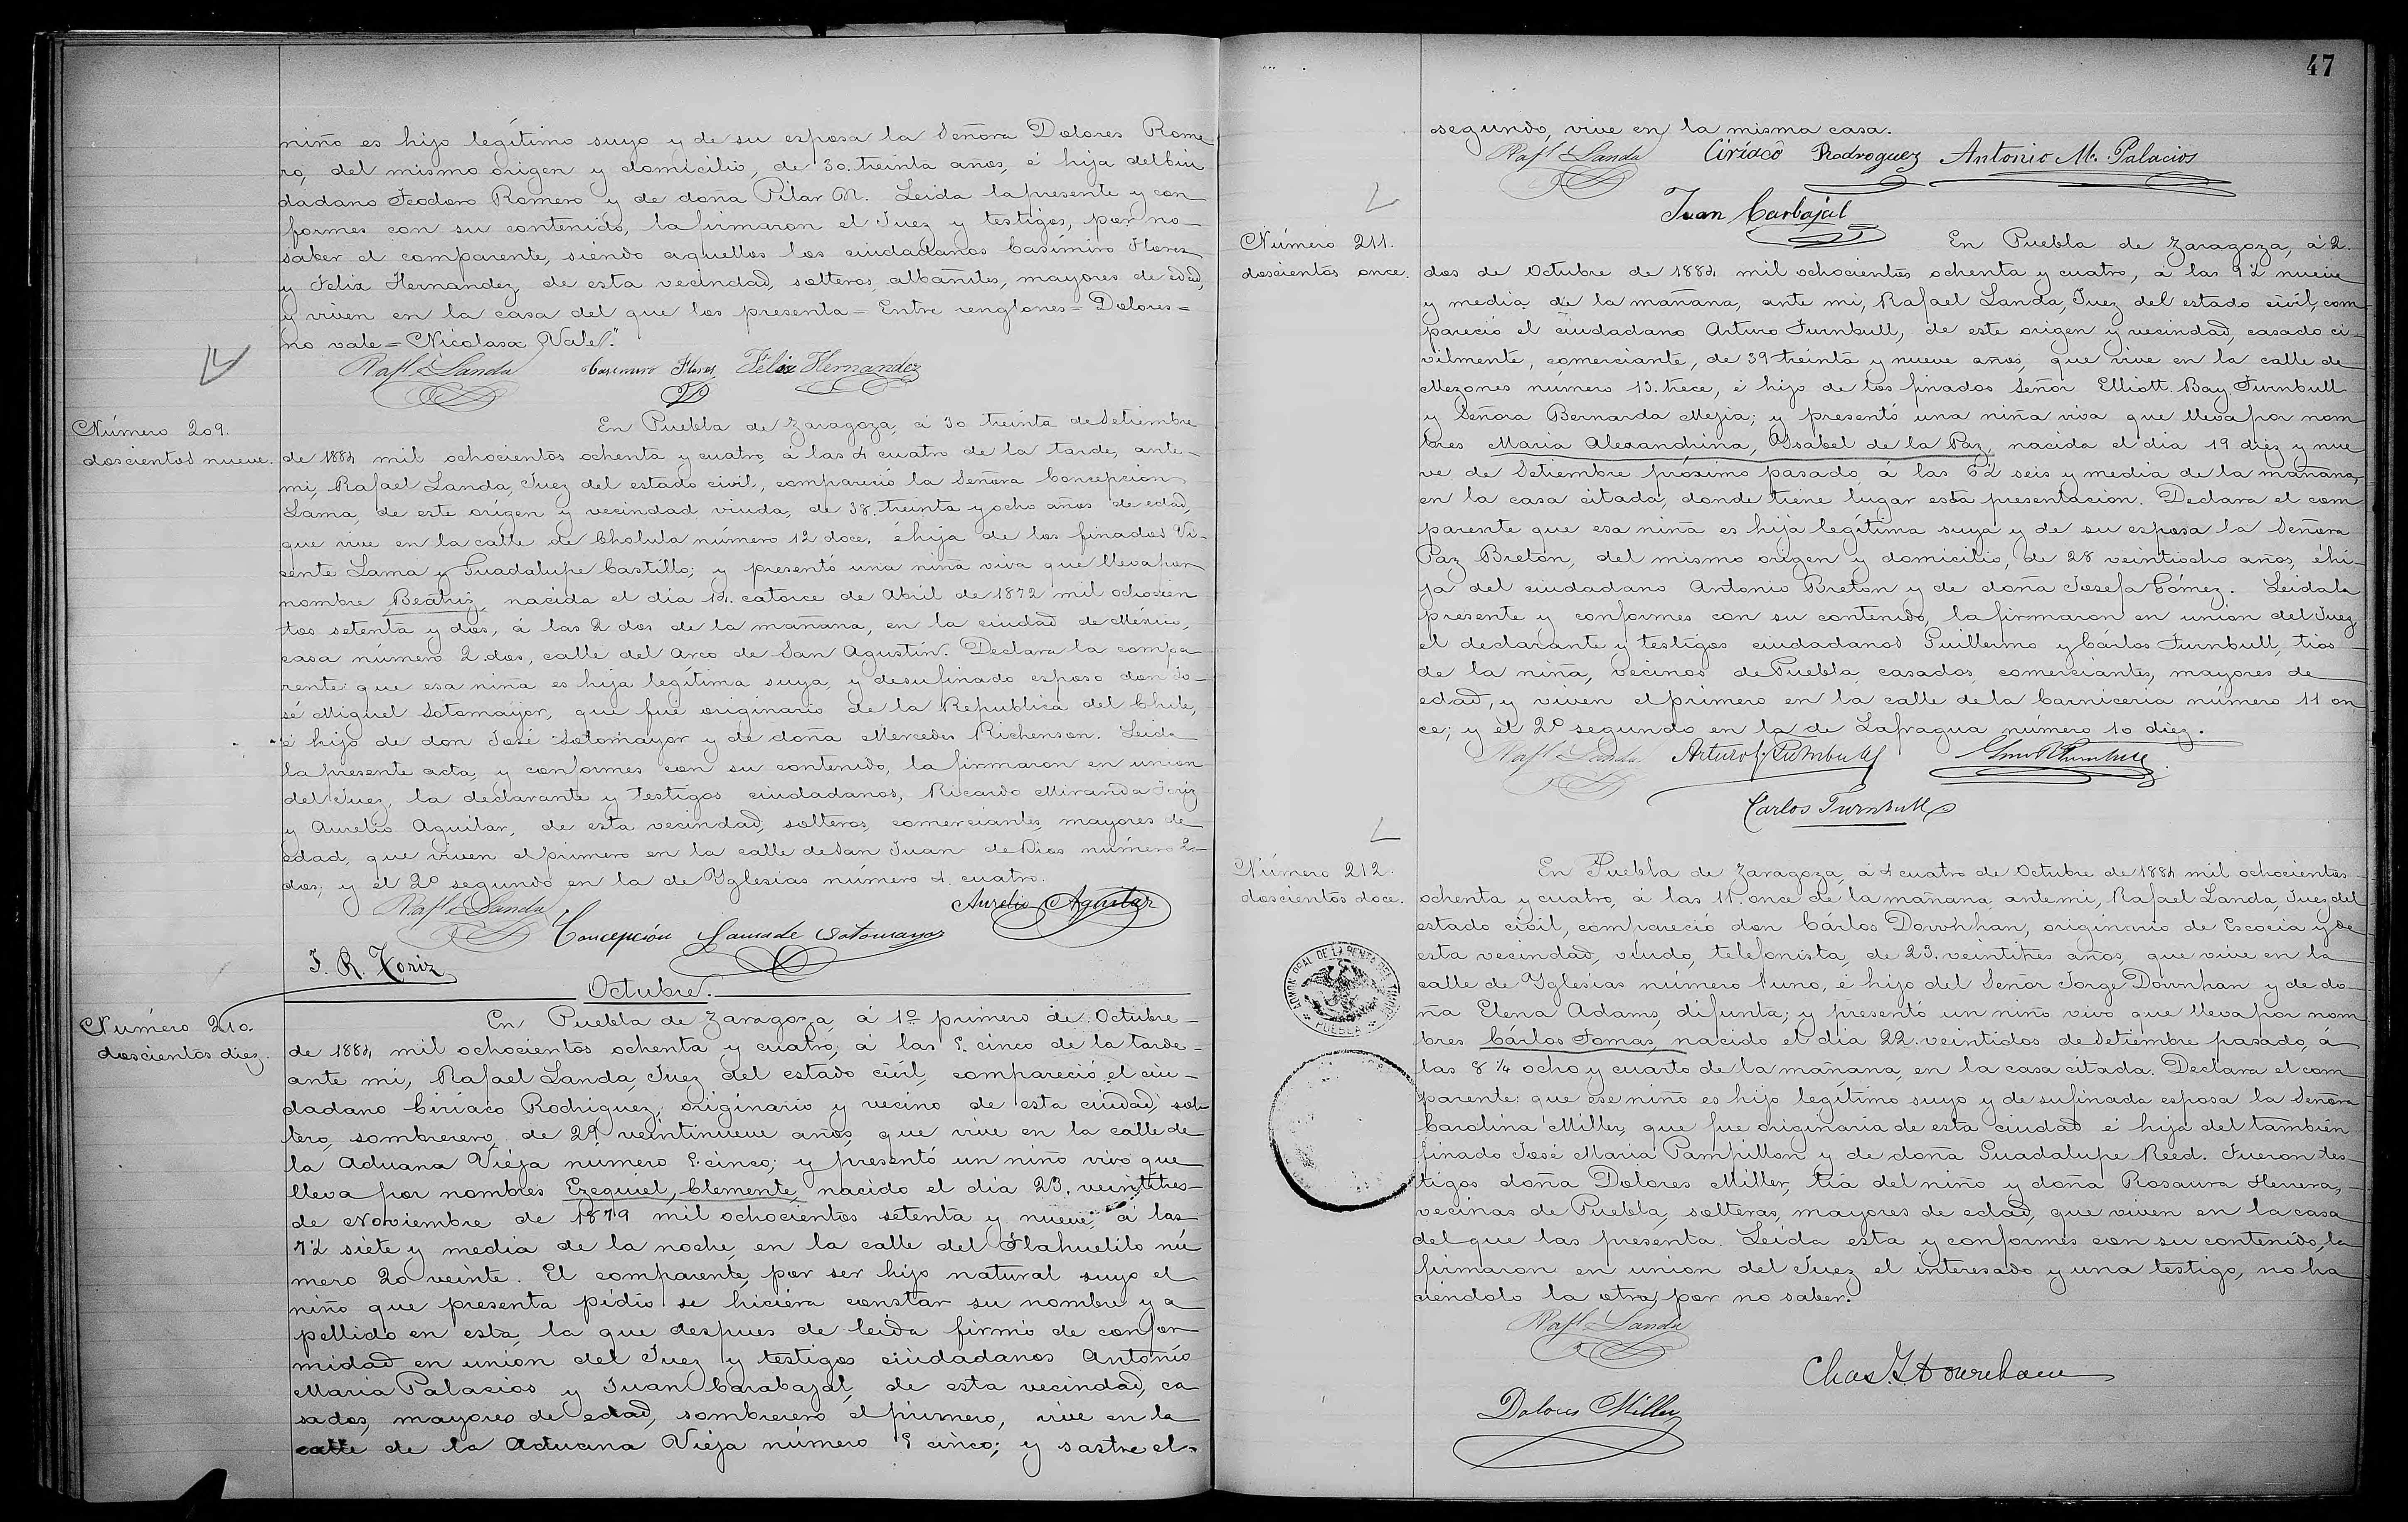 niño es hijo legítimo suyo y de su esposa la Señora Dolores Rome
ro, del mismo origen y domicilio, de 30. treinta años, é hija del ciu
dadano Teodoro Romero y de doña Pilar M. Leida la presente y con
formes con su contenido, la firmaron el Juez y testigos, por no
saber el comparente, siendo aquellos los ciudadanos Casimiro Flores
y Felix Hernandez de esta vecindad, solteros, albañiles, mayores de edad,
y viven en la casa del que los presenta = Entre renglones = Dolores =
no vale = Nicolasa Vale".
Rafl. Landa Casimiro Flores Félix Hernandez
Número 209.
doscientos nueve.
En Puebla de Zaragoza, á 30 treinta de Setiembre
de 1884 mil ochocientos ochenta y cuatro, á las 4 cuatro de la tarde, ante
mi, Rafael Landa, Juez del estado civil, compareció la Señora Concepcion
Lama, de este orígen y vecindad viuda, de 38. treinta y ocho años de edad,
que vive en la calle de Cholula número 12 doce, é hija de los finados Vi
sente Lama y Guadalupe Castillo; y presentó una niña viva que lleva por
nombre Beatriz, nacida el dia 14. catorce de Abril de 1872 mil ochocien
tos setenta y dos, á las 2 dos de la mañana, en la ciudad de México,
casa número 2 dos, calle del Arco de San Agustín. Declara la compa
rente: que esa niña es hija legítima suya, y de su finado esposo don Jo
sé Miguel Sotomayor, que fué originario de la Republica del Chile,
é hijo de don José Sotomayor y de doña Mercedes Richenson. Leida
la presente acta, y conformes con su contenido, la firmaron en union
del Juez, la declarante y testigos ciudadanos, Ricardo Miranda Toriz
y Aurelio Aguilar, de esta vecindad, solteros, comerciantes, mayores de
edad, que viven el primero en la calle de San Juan de Dios número 2
dos; y el 2º segundo en la de Yglesias número 4. cuatro.
Rafl. Landa Aurelio Aguilar
Concepción Lama de Sotomayor
J. R. Toriz
Octubre.
Número 210.
doscientos diez.
En Puebla de Zaragoza, á 1º primero de Octubre
de 1884 mil ochocientos ochenta y cuatro, á las 5. cinco de la tarde
ante mi, Rafael Landa, Juez del estado civil, compareció el ciu
dadano Ciriaco Rodriguez, originario y vecino de esta ciudad, sol
tero, sombrerero, de 29. veintinueve años, que vive en la calle de
la Aduana Vieja numero 5. cinco; y presentó un niño vivo que
lleva por nombres Ezequiel, Clemente, nacido el dia 23. veintitres
de Noviembre de 1879 mil ochocientos setenta y nueve, á las
7½ siete y media de la noche, en la calle del Tlahuelilo nú
mero 20 veinte. El comparente, por ser hijo natural suyo el
niño que presenta pidio se hiciera constar su nombre y a
pellido en esta, la que despues de leida firmó de confor
midad en unión del Juez y testigos ciudadanos Antonio
Maria Palacios y Juan Carabajal, de esta vecindad, ca
sados, mayores de edad, sombrerero el primero, vive en la
calle de la Aduana Vieja número 5 cinco; y sastre el
47
segundo, vive en la misma casa.
Rafl. Landa Ciríaco Rodroguez Antonio M. Palacios
Juan Carbajal
Número 211.
doscientos once.
En Puebla de Zaragoza, á 2.
dos de Octubre de 1884 mil ochocientos ochenta y cuatro, á las 9½ nueve
y media de la mañana, ante mi, Rafael Landa, Juez del estado civil, com
pareció el ciudadano Arturo Turnbull, de este origen y vecindad, casado ci
vilmente, comerciante, de 39 treinta y nueve años, que vive en la calle de
Mezones número 13. trece, é hijo de los finados Señor Elliott Bay Turnbull
y Señora Bernarda Mejia; y presentó una niña viva que lleva por nom
bres Maria Alexandrina, Ysabel de la Paz, nacida el dia 19 diez y nue
ve de Setiembre próximo pasado á las 6½ seis y media de la mañana,
en la casa citada, donde tiene lugar esta presentacion. Declara el com
parente que esa niña es hija legítima suya y de su esposa la Señora
Paz Breton, del mismo origen y domicilio, de 28 veintiocho años, é hi
ja del ciudadano Antonio Breton y de doña Josefa Gómez. Leida la
presente y conformes con su contenido, la firmaron en unión del Juez
el declarante y testigos ciudadanos Guillermo y Cárlos Turnbull, tios
de la niña, vecinos de Puebla, casados, comerciantes, mayores de
edad, y viven el primero en la calle de la Carniceria número 11 on
ce; y el 2º segundo en la de Lafragua número 10 diez.
Rafl. Landa Arturo Turnbull
Carlos Turnbull
Número 212.
doscientos doce.
En Puebla de Zaragoza, á 4 cuatro de Octubre de 1884 mil ochocientos
ochenta y cuatro, á las 11. once de la mañana, ante mi, Rafael Landa, Juez del
estado civil, compareció don Cárlos Downhan, originario de Escocia y de
esta vecindad, viudo, telefonista, de 23. veintitres años, que vive en la
calle de Yglesias número 1 uno, é hijo del Señor Jorge Downhan y de do
ña Elena Adams, difunta; y presentó un niño vivo que lleva por nom
bres Cárlos Tomas, nacido el dia 22. veintidos de Setiembre pasado, á
las 8¼ ocho y cuarto de la mañana, en la casa citada. Declara el com
parente: que ese niño es hijo legítimo suyo y de su finada esposa la Señora
Carolina Miller, que fue originaria de esta ciudad é hija del tambien
finado José Maria Pampillon y de doña Guadalupe Reed. Fueron tes
tigos doña Dolores Miller, tia del niño y doña Rosaura Herrera,
vecinas de Puebla, solteras, mayores de edad, que viven en la casa
del que las presenta. Leida esta y conformes con su contenido, la
firmaron en union del Juez el interesado y una testigo, no ha
ciendolo la otra, por no saber.
Rafl. Landa
Dolores Miller